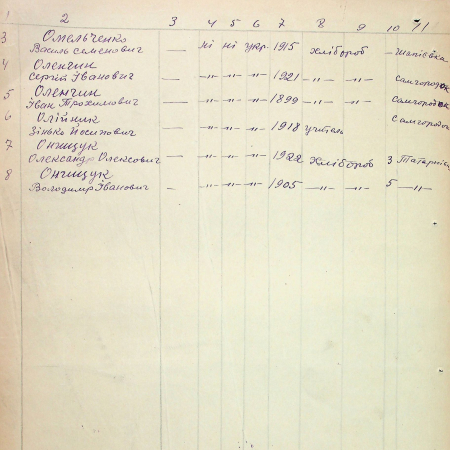 1 2 3 4 5 6 7 8 9 10 11
3 Омельченко
Василь Семенович — ні ні укр. 1915 хлібороб — Шапіївка
4 Оленчин
Сергій Іванович — —"— —"— —"— 1921 —"— —"— Самгородок
5 Оленчин
Іван Трохимович — —"— —"— —"— 1899 —"— —"— Самгородок
6 Олійник Самгородок
Зінько Йосипович — —"— —"— —"— 1918 учитель
7 Онищук
Олександр Олексович — —"— —"— —"— 1922 Хлібороб 3
8 Онищук
Володимир Іванович — —"— —"— —"— 1905 —"— —"— 5 —"—